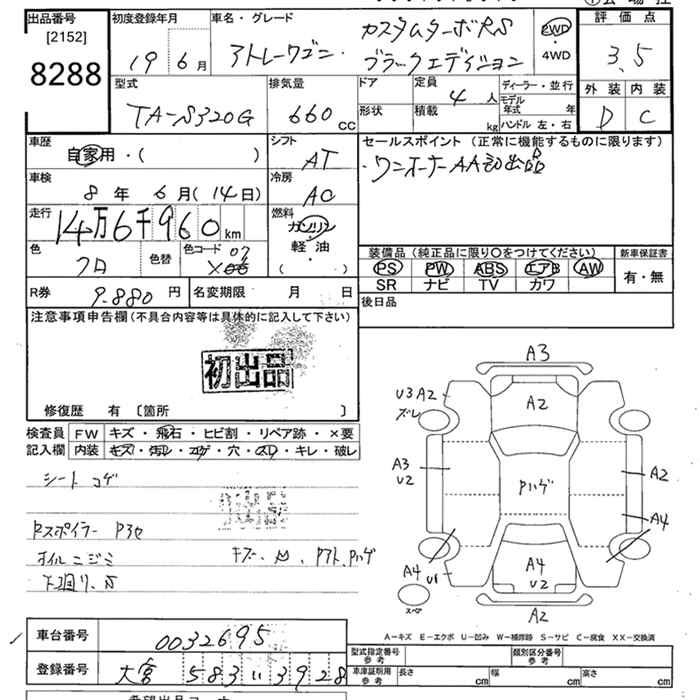 出品番号 [2152] 8288
初度登録年月 19 6月
車名・グレード アトレーワゴン カスタムターボRS
ブラックエディション
2WD・4WD
評価点 3.5
外装 内装
D C
型式 TA-S320G
排気量 660cc
ドア 形状
定員 4人
積載 kg
ディーラー・並行
モデル年式 年
ハンドル 左・右
車歴 自家用・( )
シフト AT
セールスポイント(正常に機能するものに限ります)
・ワンオーナーAA初出品
車検 8年6月(14日)
冷房 AC
走行 14万6千960km
燃料 ガソリン・軽油・( )
色 クロ
色替
色コード 07 X06
装備品(純正品に限り○をつけてください)
PS PW ABS エアB AW
SR ナビ TV カワ
新車保証書 有・無
R券 9.880円
名変期限 月 日
後日品
注意事項申告欄(不具合内容等は具体的に記入して下さい)
初出品
修復歴 有 〔箇所 〕
検査員記入欄
FW キズ・飛石・ヒビ割・リペア跡・×要
内装 キズ・汚レ・コゲ・穴・スリ・キレ・破レ
シート コゲ
RスポイラーP3セ
オイルニジミ
下廻り.S
A3
U3 A2
ズレ
A2
A3
U2
Pハゲ
A2
A4
A4 U1
A4
U2
スペア
A2
A-キズ E-エクボ U-凹み W-補修跡 S-サビ C-腐食 XX-交換済
車台番号 0032695
登録番号 大宮 583 い 3928
型式指定番号 参考
類別区分番号 参考
車庫証明用 参考
長さ cm
幅 cm
高さ cm